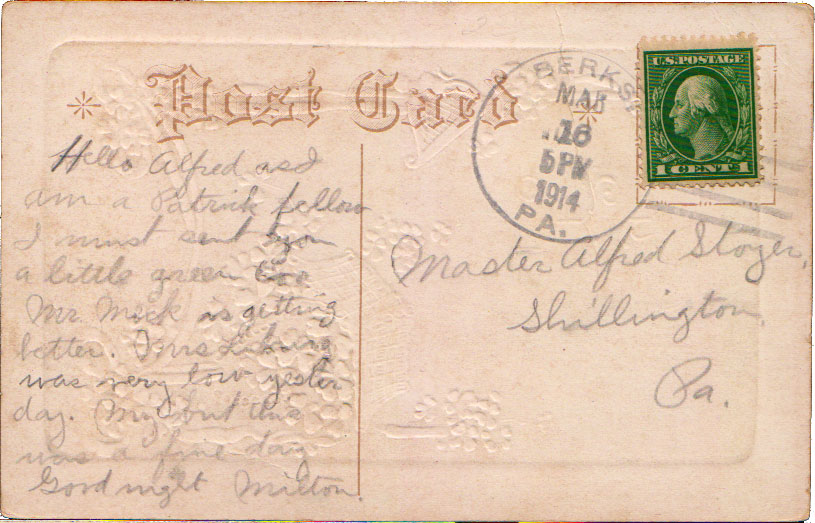 Post Card
BERKS,
MAR
16
5 PM
1914
PA.
U.S. POSTAGE
1 CENT 1
Hello Alfred as I
am a Patrick fellow
I must sent you
a little green too
Mr. Mick is getting
better. Mrs
was very low yester
day. My but this
was a fine day
Good night Milton.
Master Alfred Stozer,
Shillington,
Pa.